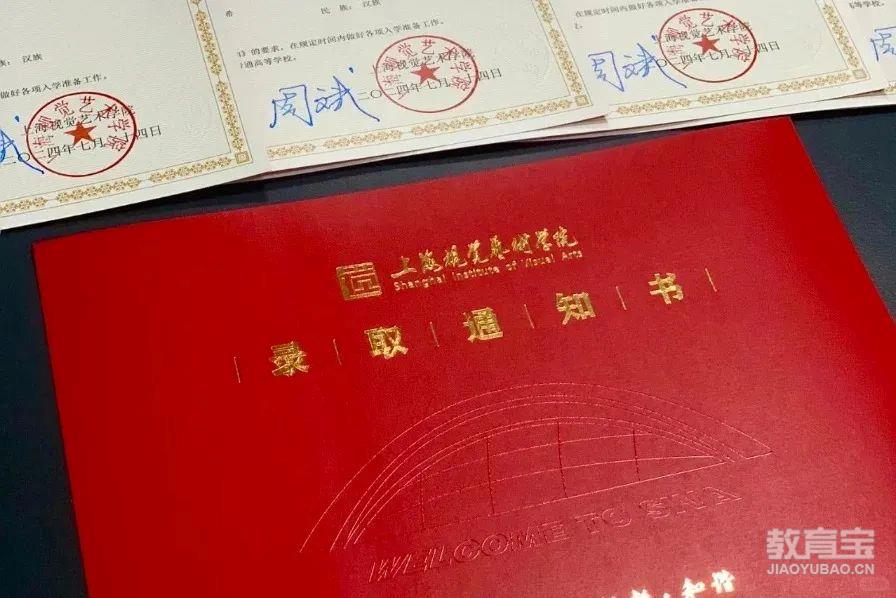 希 民 族: 汉族
的要求，在规定时间内做好各项入学准备工作。
通高等学校。
上海视觉艺术学院
二〇二四年七月二十四日
周斌
族: 汉族
做好各项入学准备工作。
上海视觉艺术学院
二〇二四年七月二十四日
在规定时间内做好各项入学准备工作。
上海视觉艺术学院
二〇二四年七月二十四日
周斌
等学校。
上海视觉艺术学院
Shanghai Institute of Visual Arts
录取通知书
WELCOME TO SIVA
和谐
教育宝
JIAOYUBAO.CN